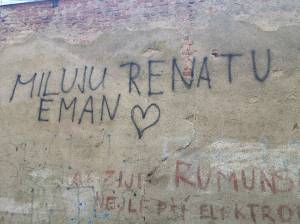 MILUJU RENATU
EMAN
AŤ ŽIJE RUMUNS
NEJLEPŠÍ ELEKTRO